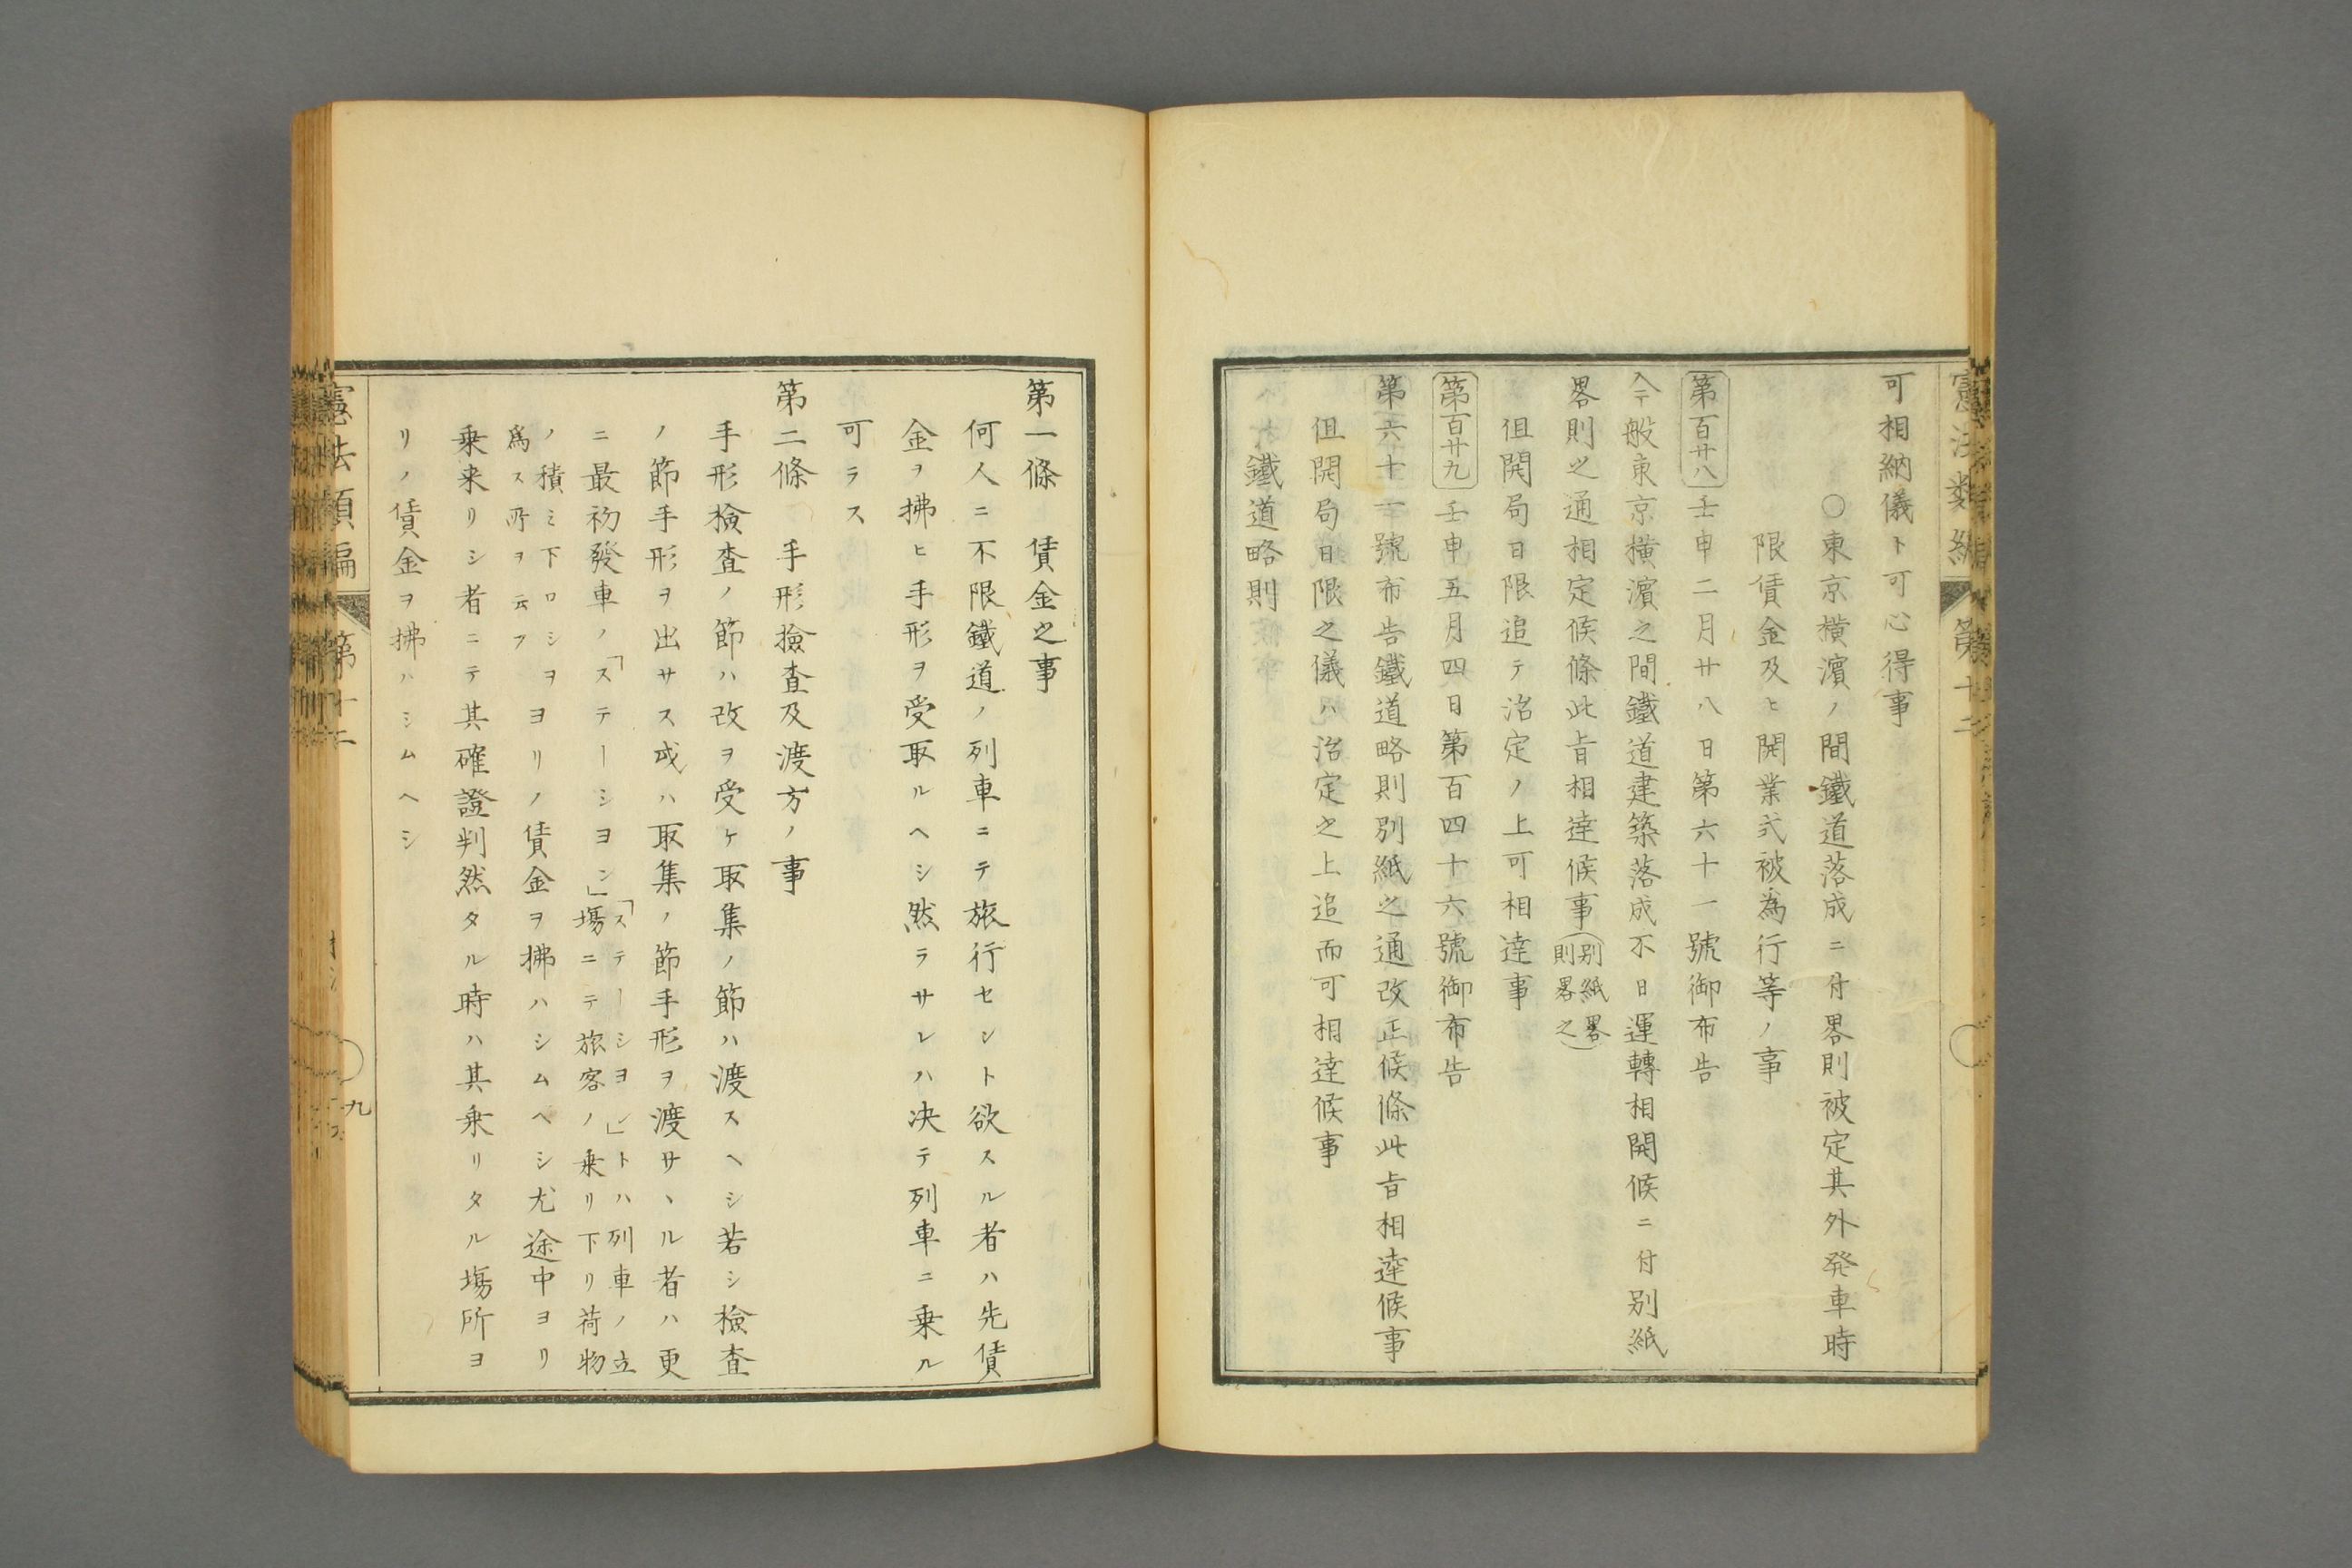 可相納儀ト可心得事
〇東京横濵ノ間鐵道落成ニ付畧則被定其外発車時
限賃金及ヒ開業式被為行等ノ事
第百廿八 壬申二月廿八日第六十一號御布告
今般東京横濵之間鐵道建築落成不日運轉相開候ニ付別紙
畧則之通相定候條此旨相達候事(別紙畧則畧之)
但開局日限追テ治定ノ上可相達事
第百廿九 壬申五月四日第百四十六號御布告
第六十一號布告鐵道略則別紙之通改正候條此旨相達候事
但開局日限之儀ハ治定之上追而可相達候事
鐵道略則
憲法類編 第十二
第一條 賃金之事
何人ニ不限鐵道ノ列車ニテ旅行セント欲スル者ハ先賃
金ヲ拂ヒ手形ヲ受取ルヘシ然ラサレハ决テ列車ニ乗ル
可ラス
第二條 手形撿査及渡方ノ事
手形撿査ノ節ハ改ヲ受ケ取集ノ節ハ渡スヘシ若シ撿査
ノ節手形ヲ出サス或ハ取集ノ節手形ヲ渡サヽル者ハ更
ニ最初發車ノ「ステーシヨン」「ステーシヨン」トハ列車ノ立場ニテ旅客ノ乗リ下リ荷物
ノ積ミ下ロシヲ為ス所ヲ云フヨリノ賃金ヲ拂ハシムヘシ尤途中ヨリ
乗来リシ者ニテ其確證判然タル時ハ其乗リタル塲所ヨ
リノ賃金ヲ拂ハシムヘシ
憲法類編 第十二
九